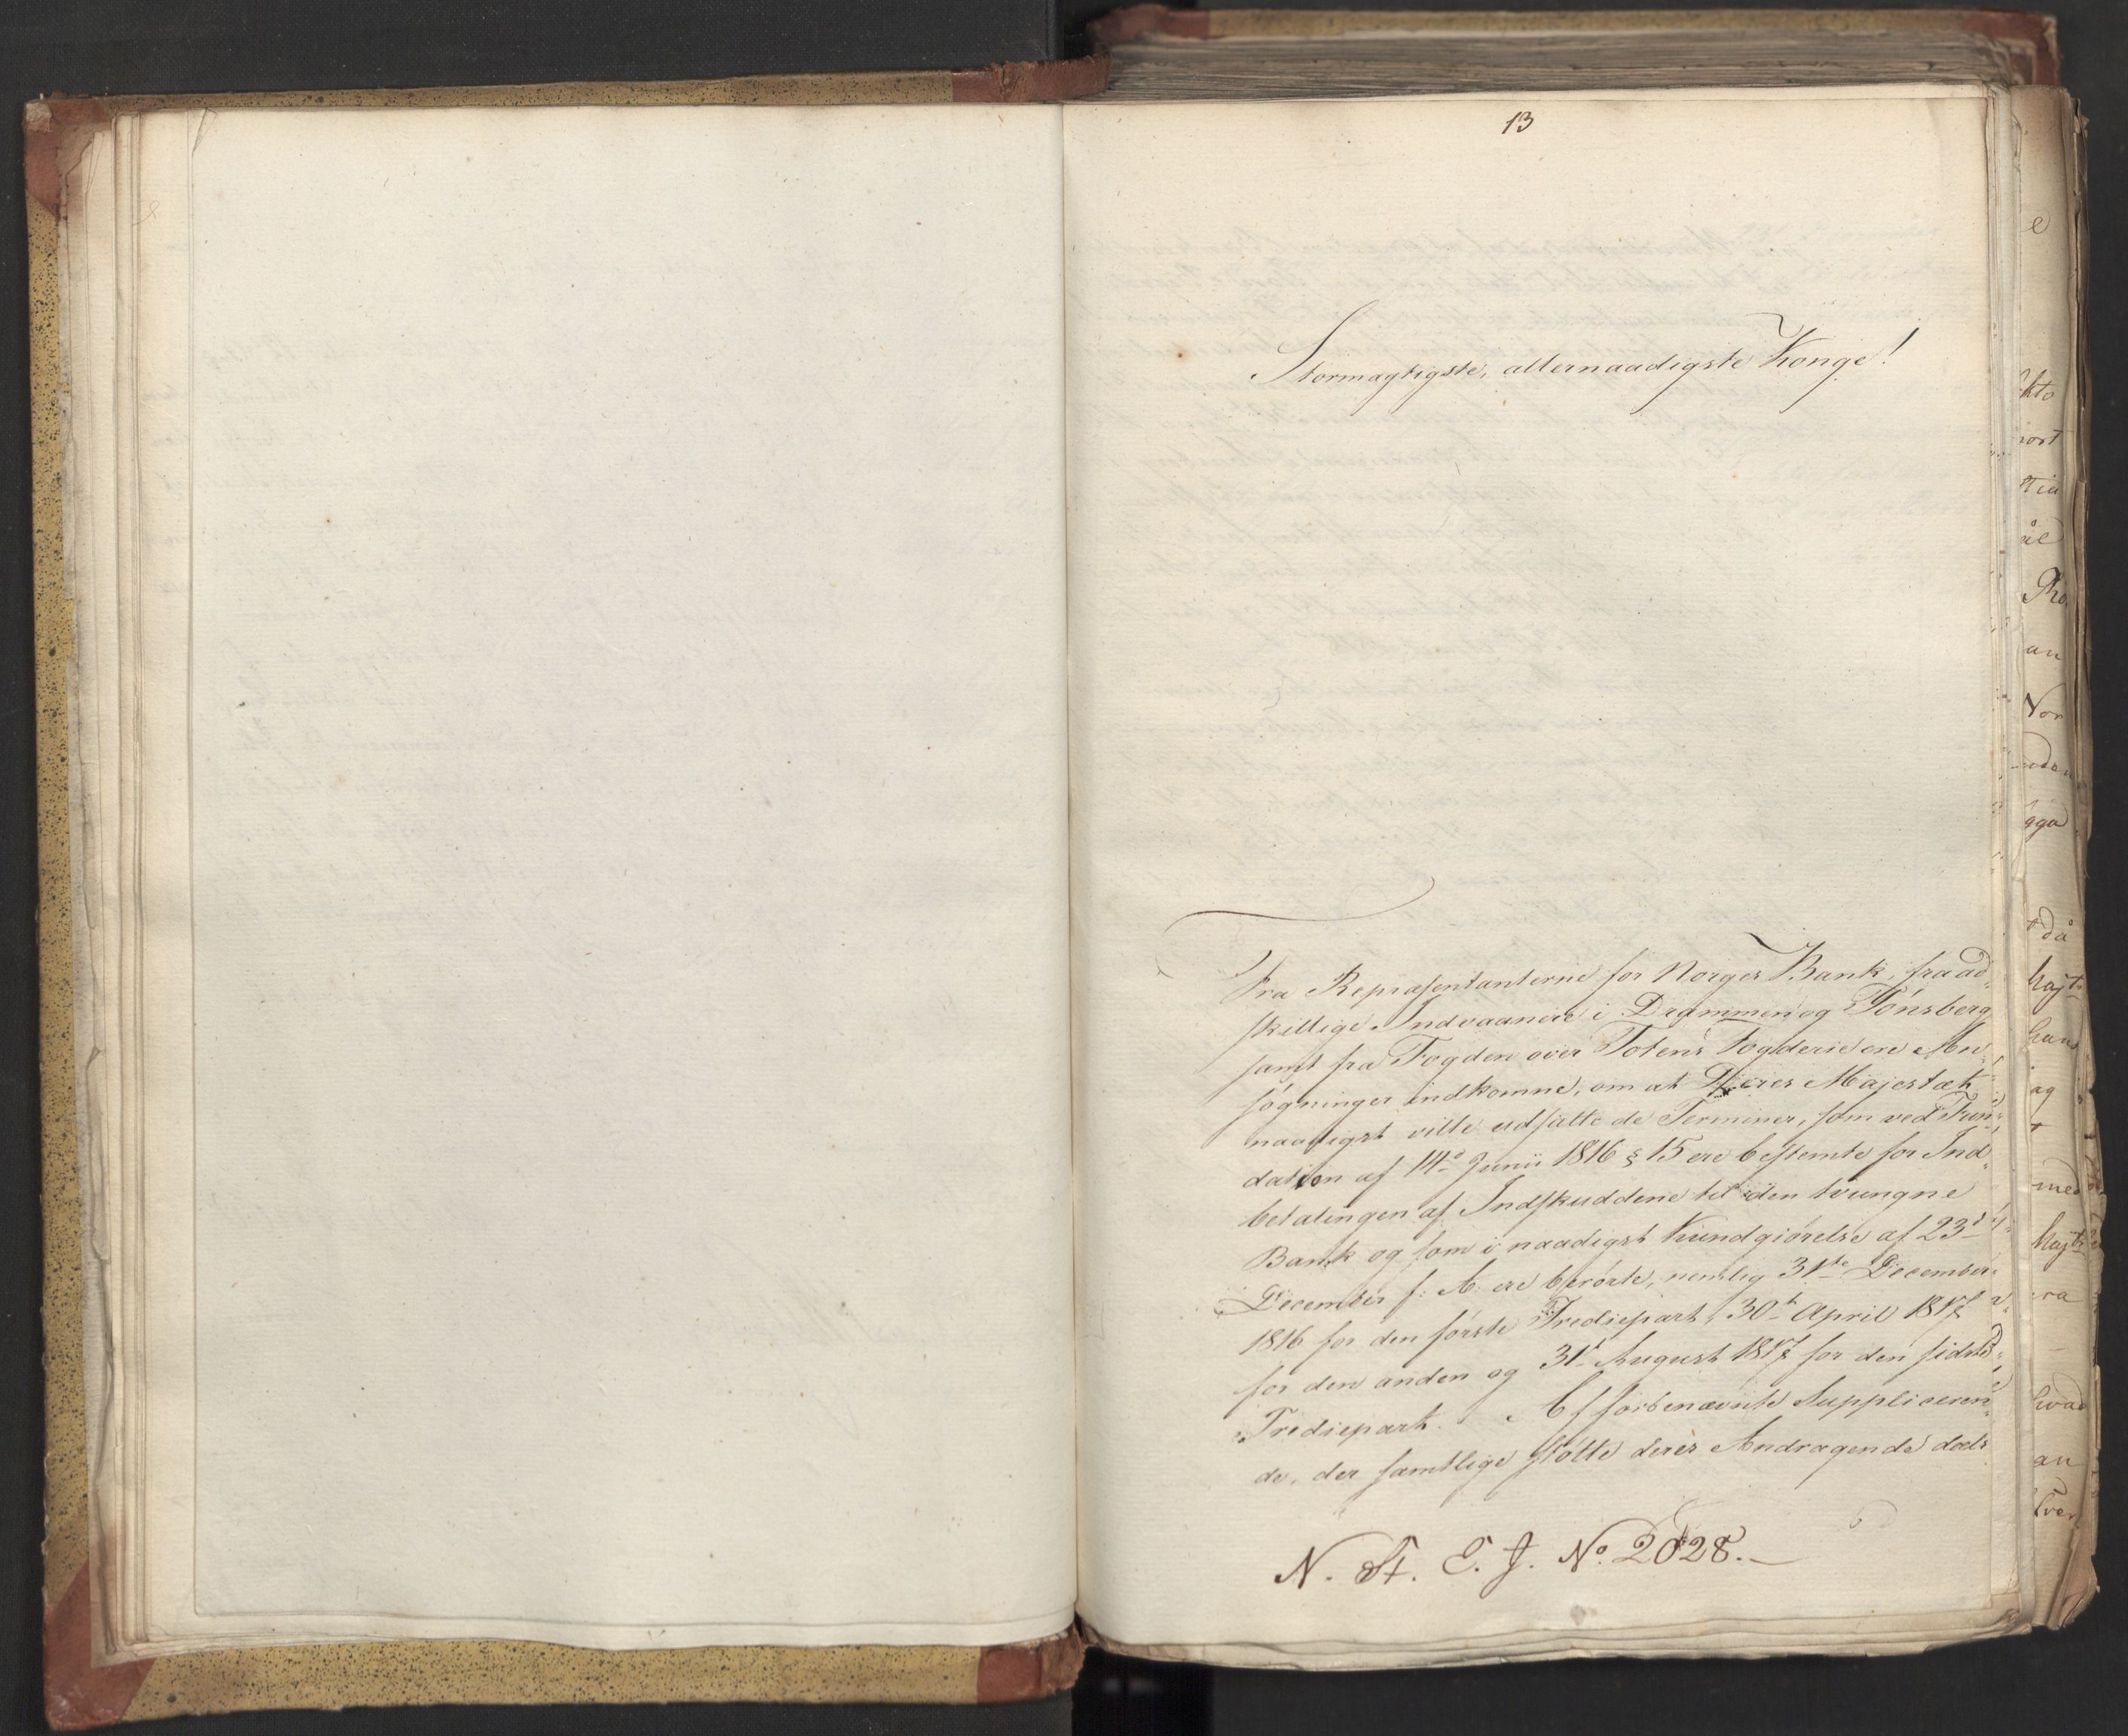 13
Stormagtigste, allernaadigste Konge!
Fra Repræsentanterne for Norges Bank, fra ad-
skillige Indvaanere i Drammen og Tønsberg
samt fra Fogden over Totens Fogderie ere An-
søgninger indkomne, om at Deres Majestæt
naadigst ville udsætte de Terminer, som ved Fun-
dation af 14de Junii 1816 § 15 ere bestemte for Ind-
betalingen af Indskuddene til den tvungne
Bank og som i naadigst Kundgiørelse af 23d
December f: A: ere berørte, nemlig 31te December
1816 for den første Trediepart, 30t April 1817
for den anden og 31t August 1817 for den sidste
Trediepart. Af forbenævnte Supplieren-
de, der samtlige støtte deres Andragende deels
N. St. E. J. No. 2028.
e
kto
nort
tia
ål
Rho
an
Nor
uda
gga
då
hajts
hans
ag
t
med
Majts
ra
hvad
an